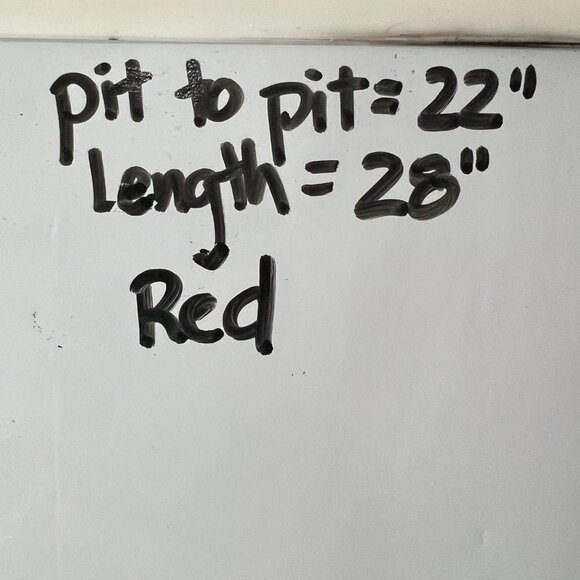 pit to pit= 22"
Length = 28"
Red